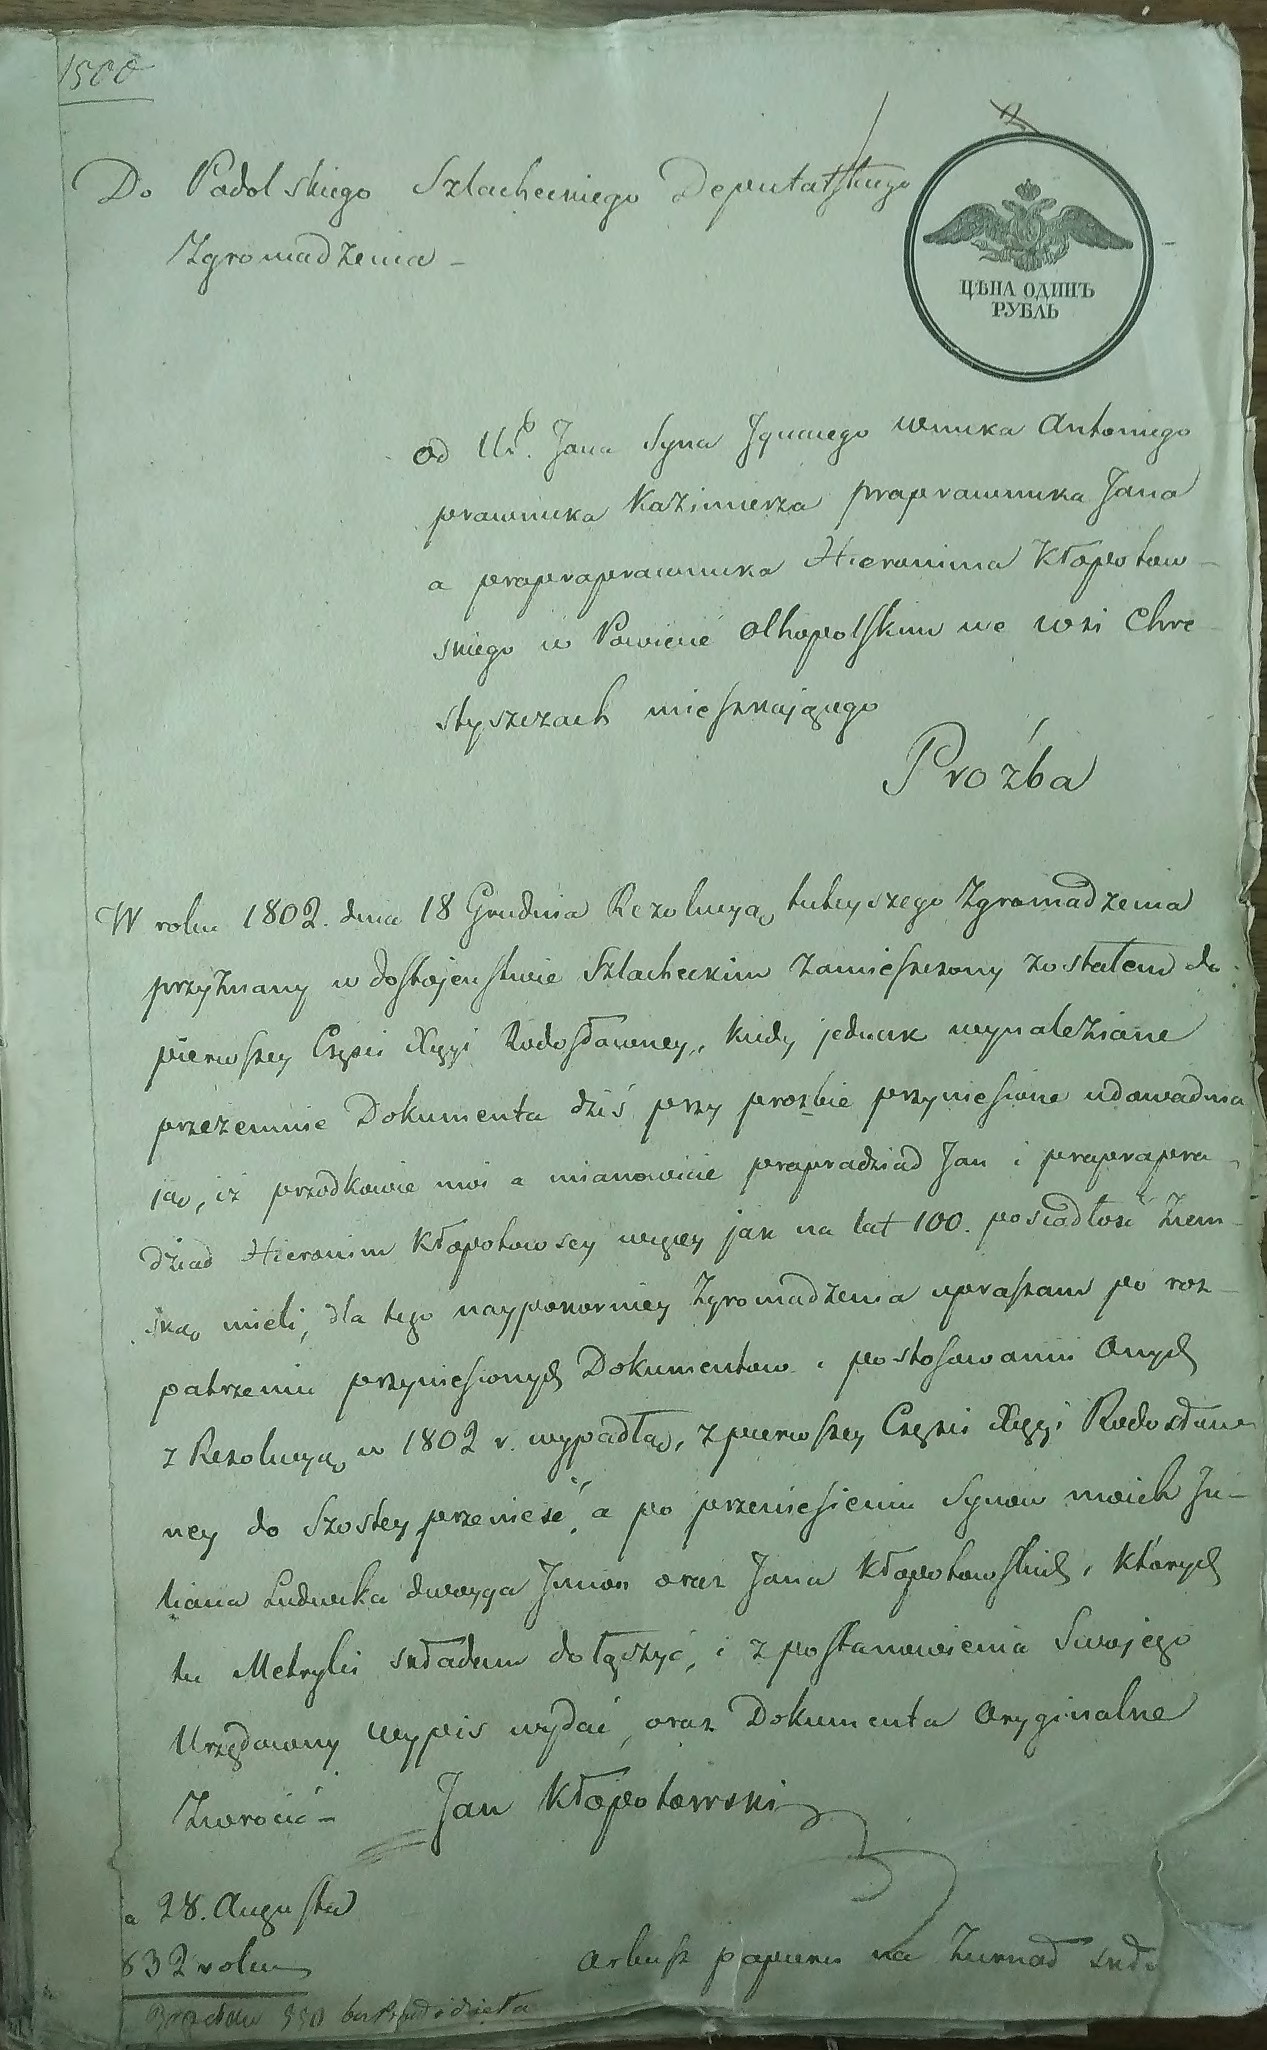 1500
Do Podolskiego Szlacheckiego Deputatskiego
Zgromadzenia –
ЦѢНА ОДИНЪ
РУБЛЬ
od Ur. Jana Syna Jgnacego wnuka Antoniego
prawnuka Kazimierza praprawnuka Jana
a prapraprawnuka Hieronima Kłopotow–
skiego w Powiecie Olhopolskim we wsi Chre–
styszczach mieszkającego
Proźba
W roku 1802. dnia 18 Grudnia Rezolucyą tuteyszego Zgromadzenia
przyznany w dostojeństwie Szlacheckim zamieszczony zostałem do
pierwszey Części Xięgi Rodosławney, kiedy jednak wynalezione
przezemnie Dokumenta dziś przy prozbie przyniesione udowadnia
ją, iż przodkowie moi a mianowicie prapradziad Jan i praprapra–
dziad Hieronim Kłopotowscy więcey jak na lat 100. posiadłość Ziem–
ską mieli, dla tego naypokorniey Zgromadzenia upraszam po roz–
patrzeniu przyniesionych Dokumentow i postosowaniu Onych
z Rezolucyą w 1802 r. wypadłą, z pierwszey Części Xięgi Rodosław
ney do Szostey przenieść, a po przeniesieniu Synow moich Ju–
liana Ludwika dwoyga Jmion oraz Jana Kłopotowskich, których
tu Metryki składam dołączyć, i z postanowienia Swojego
Urzędowny wypis wydać, oraz Dokumenta Oryginalne
Zwrocić –
Jan Kłopotowski
a 28. Augusta
832 roku
Arkusz papieru na Zurnał